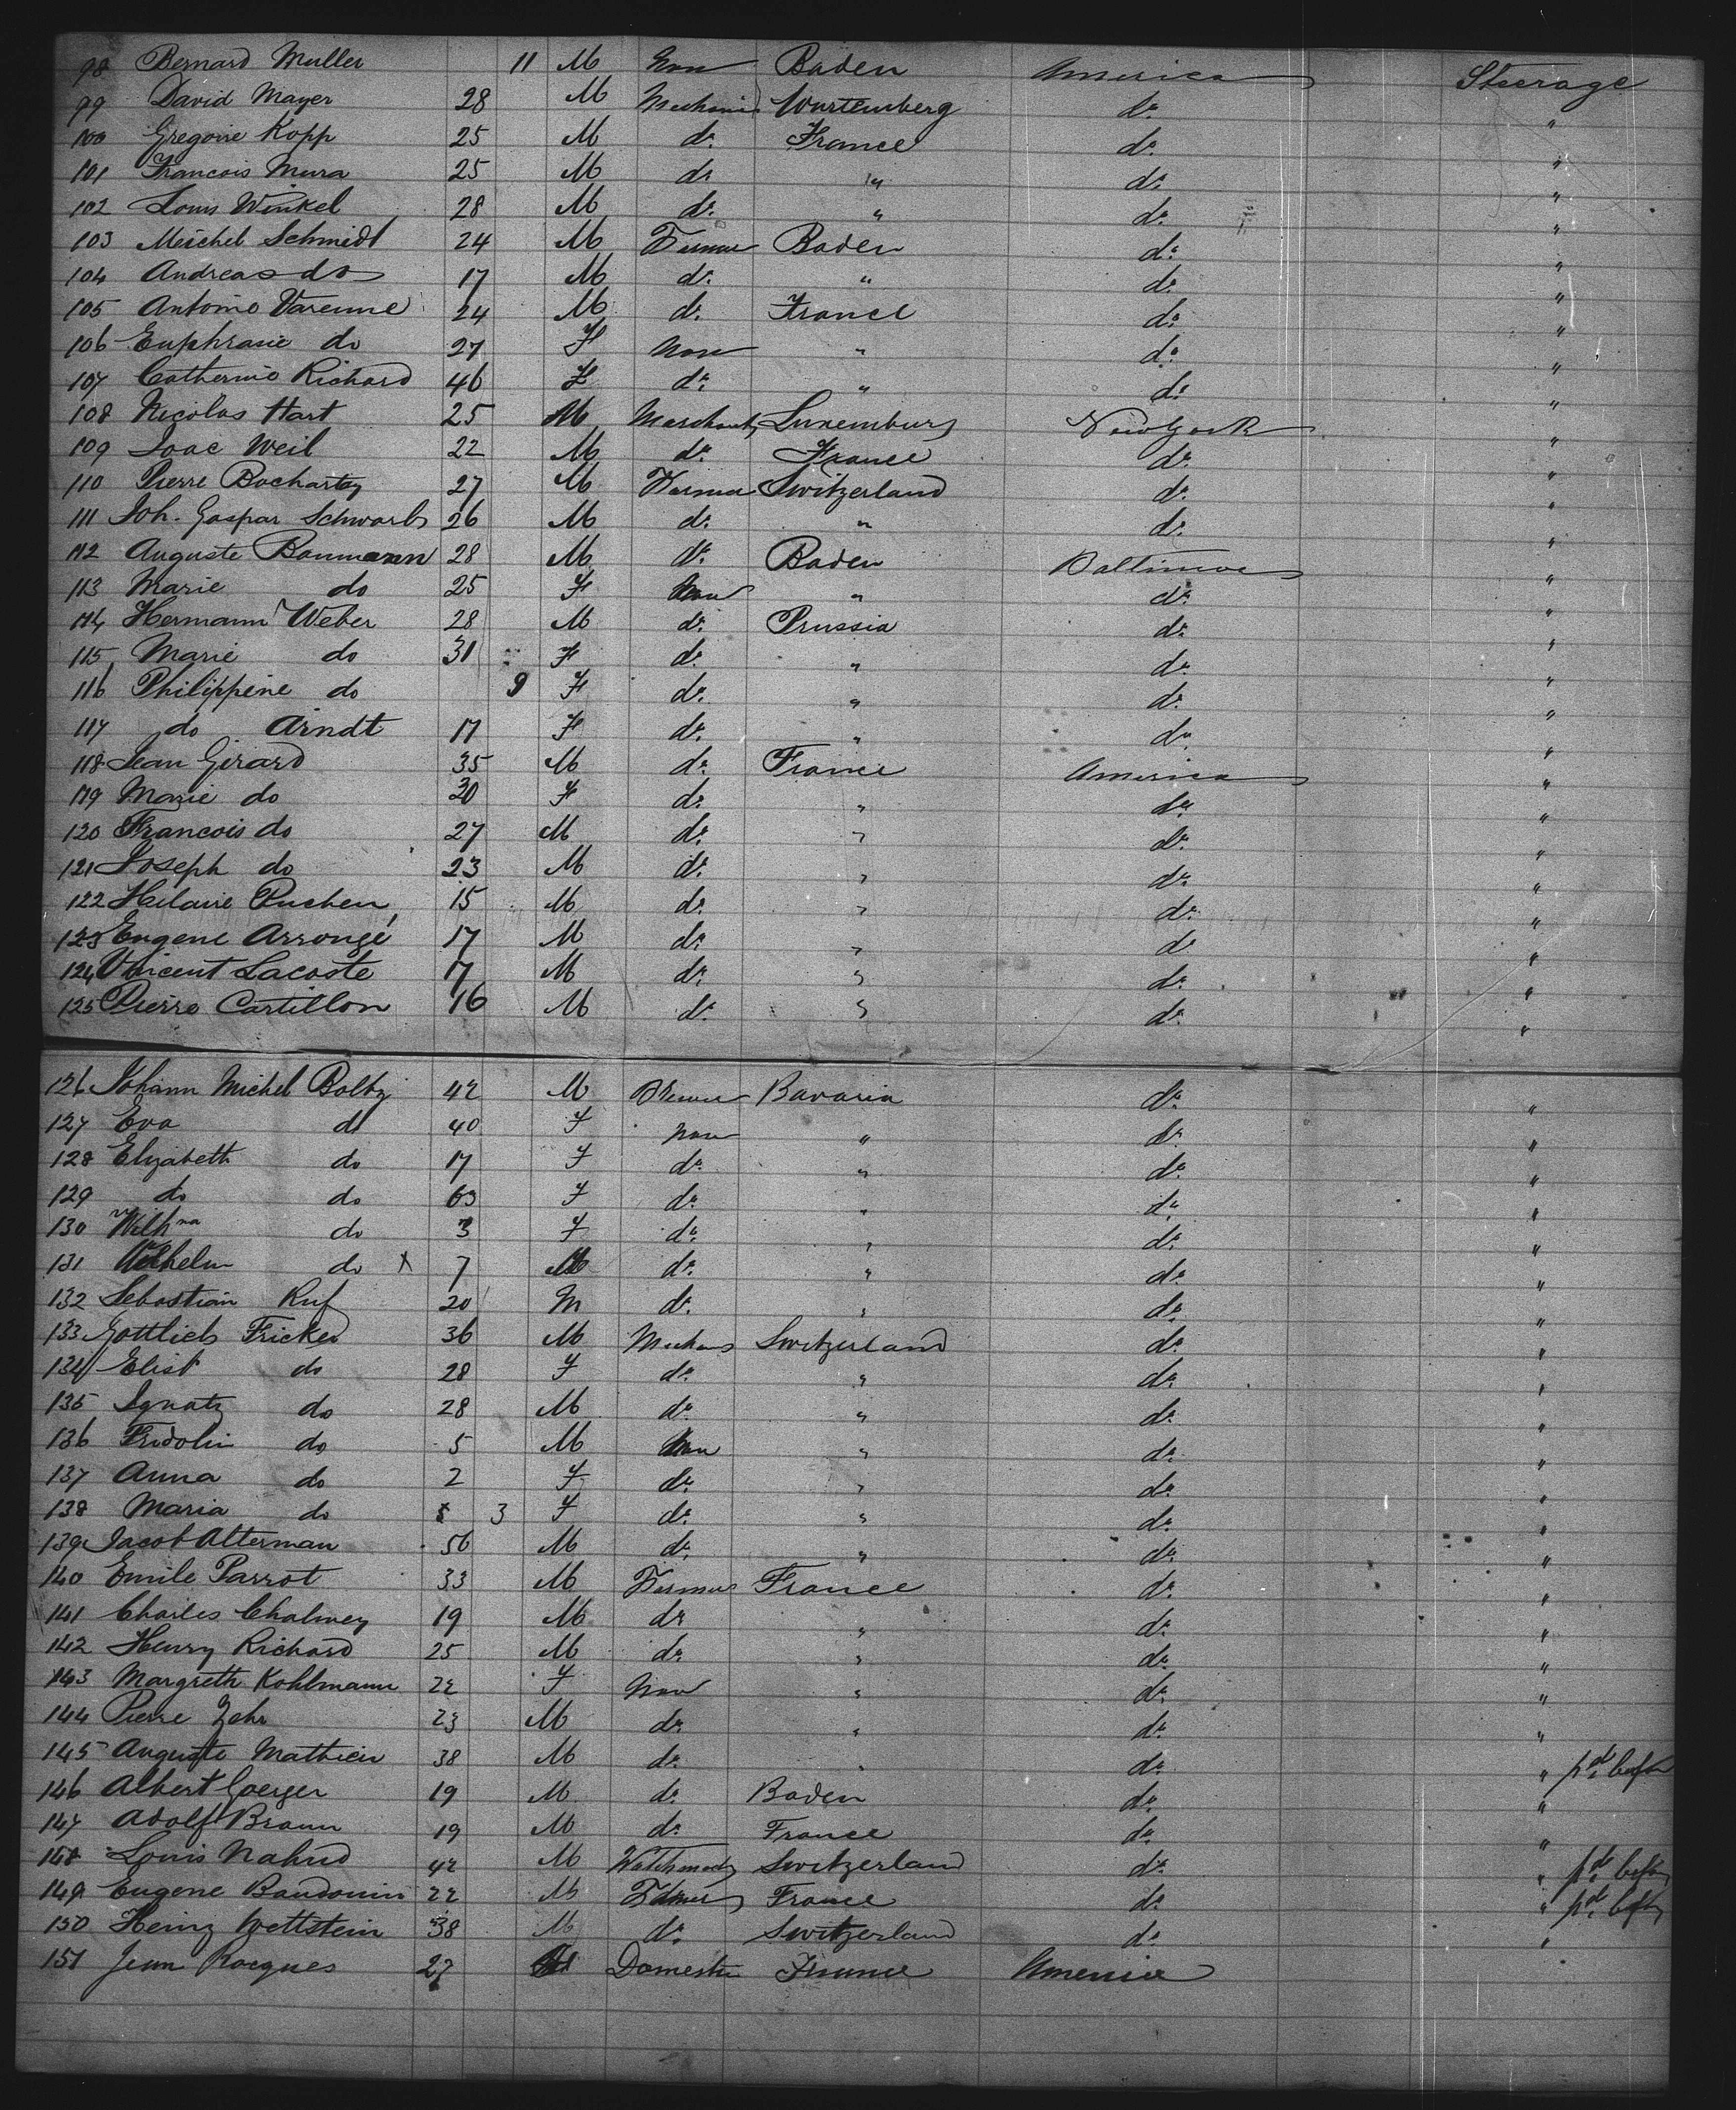 98 Bernard Muller 11 M Non Baden America Steerage
99 David Mayer 28 M Mechanic Wurtemberg do "
100 Gregoire Kopp 25 M do France do "
101 Francois Mura 25 M do " do "
102 Louis Winkel 28 M do " do "
103 Meichel Schmidt 24 M Farmer Baden do "
104 Andreas do 17 M do " do "
105 Antoine Varenne 24 M do France do "
106 Euphrasie do 27 F Non " do "
107 Catherine Richard 46 F do " do "
108 Nicolas Hart 25 M Merchant Luxemburg New York "
109 Isaac Weil 22 M do France do "
110 Pierre 27 M Farmer Switzerland do "
111 Joh. Gaspar Schwarb 26 M do " do "
112 Auguste Baumann 28 M do Baden Baltimore "
113 Marie do 25 F Non " do "
114 Hermann Weber 28 M do Prussia do "
115 Marie do 31 F do " do "
116 Philippine do 9 F do " do "
117 do Arndt 17 F do " do "
118 Jean Girard 35 M do France America "
119 Marie do 30 F do " do "
120 Francois do 27 M do " do "
121 Joseph do 23 M do " do "
122 Hilaire Puchen 15 M do " do "
123 Eugene Arrongé 17 M do " do "
124 Vincent Lacoste 17 M do " do "
125 Pierre Cartillon 16 M do " do "
126 Johann Michel Boltz 42 M Bavaria do "
127 Eva do 40 F Non " do "
128 Elizabeth do 17 F do " do "
129 do do 63 F do " do "
130 Wilhna do 3 F do " do "
131 Wilhelm do x 7 M do " do "
132 Sebastian Ruf 20 M do " do "
133 Gottlieb Fricker 36 M Switzerland do "
134 Elist do 28 F do " do "
135 Ignatz do 28 M do " do "
136 Fridolin do 5 M Non " do "
137 Anna do 2 F do " do "
138 Maria do 3 F do " do "
139 Jacob Alterman 56 M do " do "
140 Emile Parrot 33 M Farmer France do "
141 Charles Chalmey 19 M do " do "
142 Henry Richard 25 M do " do "
143 Margreth Kohlmann 22 F Non " do "
144 Pierre Zehr 23 M do " do "
145 Auguste Mathieu 38 M do " do "
146 Albert Goerger 19 M do Baden do "
147 Adolf Braun 19 M do France do "
148 Louis 42 M Switzerland do "
149 Eugene Baudouin 22 M Farmer France do "
150 Heinz Wettstein 38 M do Switzerland do "
151 Jean Racques 27 M Domestic France America